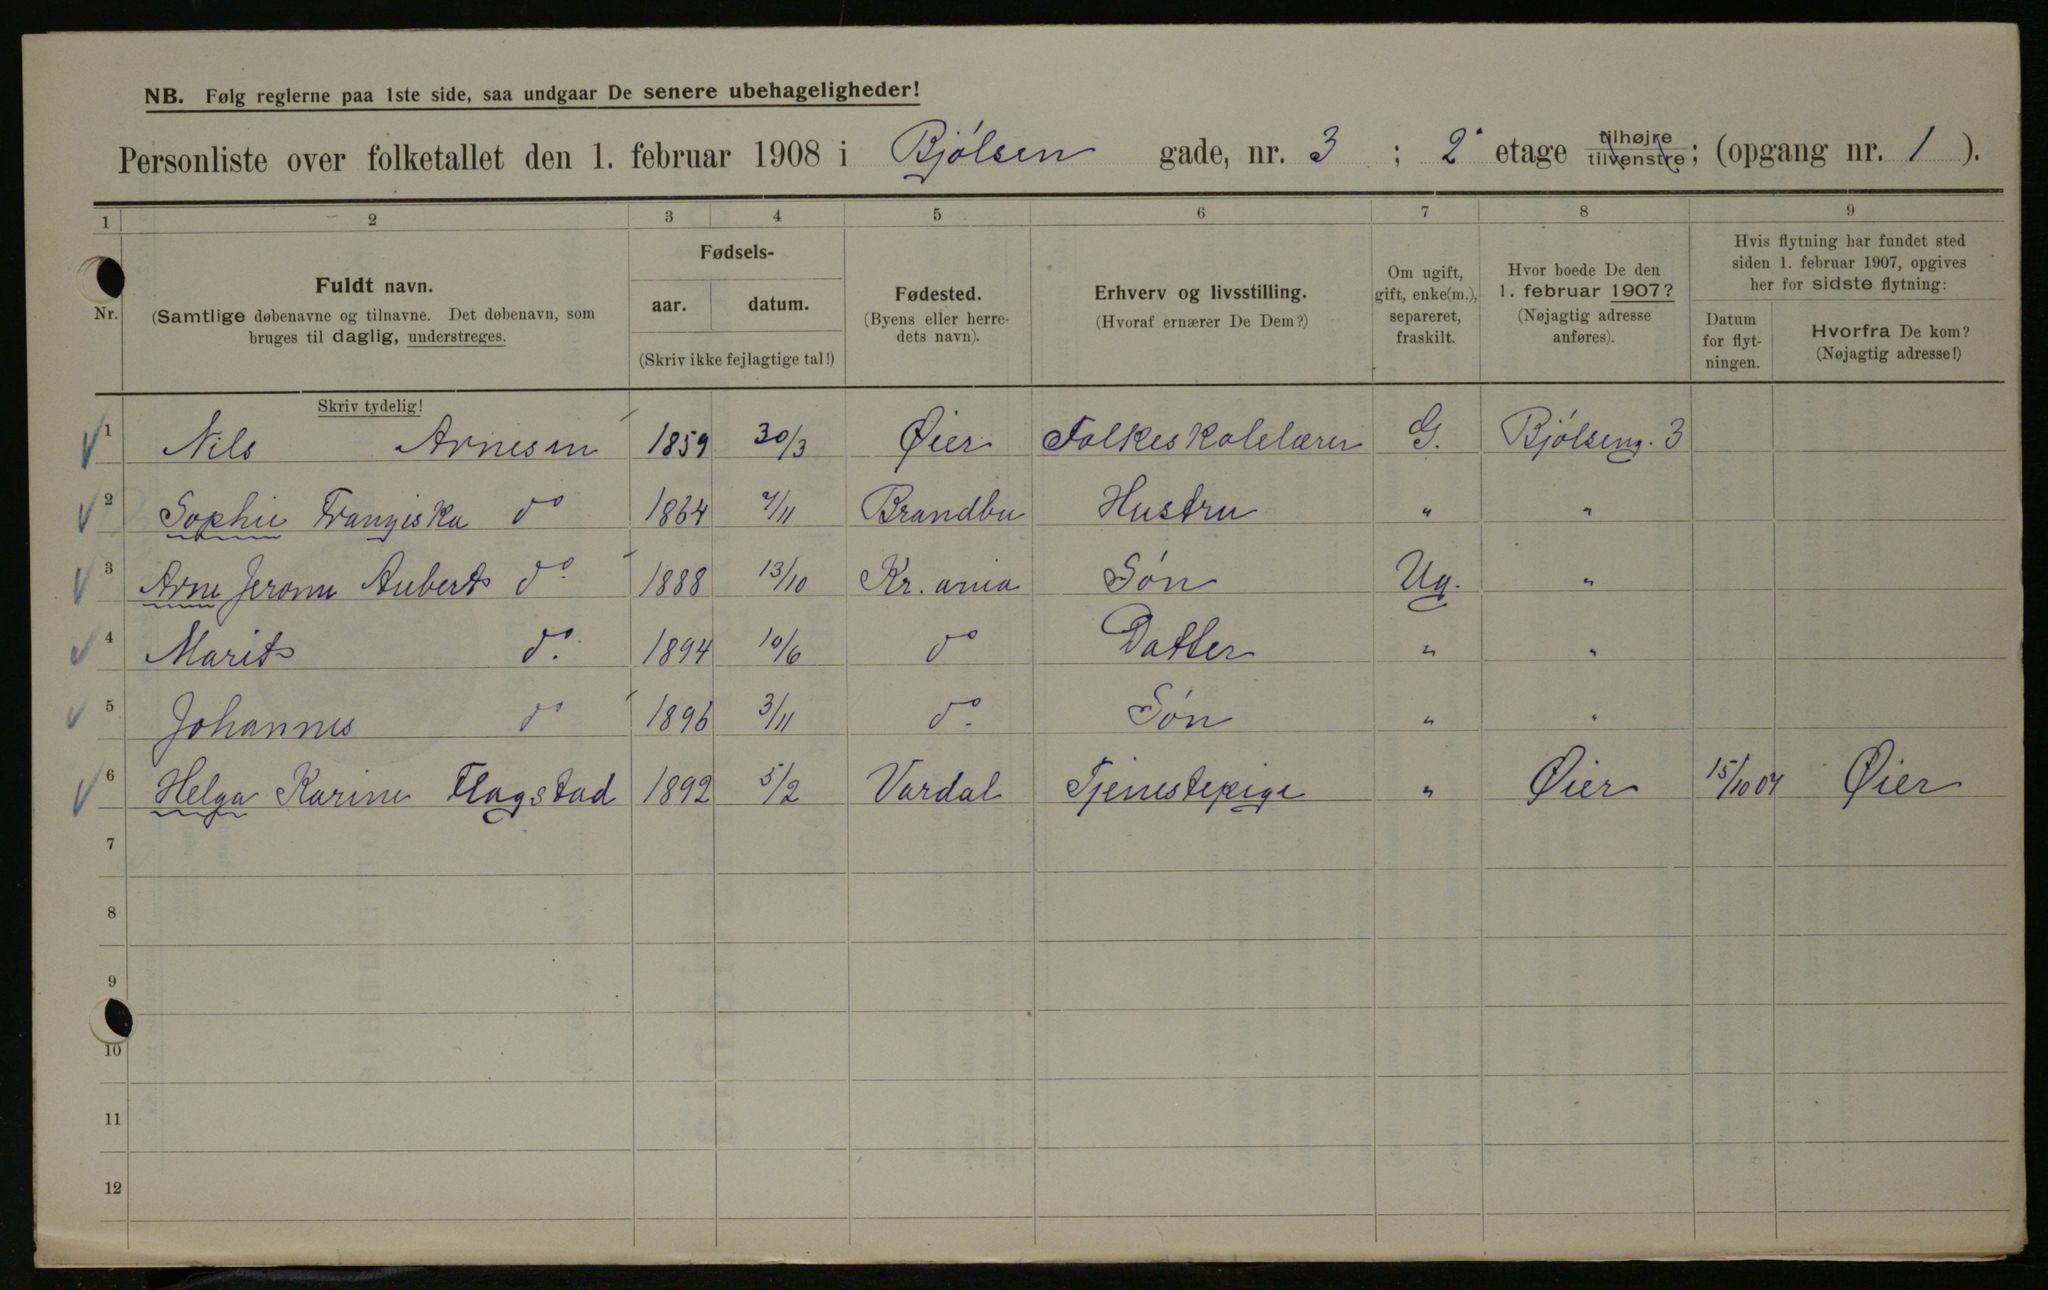 NB. Følg reglerne paa 1ste side, saa undgaar De senere ubehageligheder!
Personliste over folketallet den 1. februar 1908 i Bjølsen gade, nr. 3 ; 2' etage tilhøjre tilvenstre; (opgang nr. 1 ).
1 2 3 4 5 6 7 8 9
Nr.
Fuldt navn.
(Samtlige døbenavne og tilnavne. Det døbenavn, som
bruges til daglig, understreges.
Skriv tydelig!
Fødsels-
aar. datum.
(Skriv ikke fejlagtige tal!)
Fødested.
(Byens eller herre-
dets navn).
Erhverv og livsstilling.
(Hvoraf ernærer De Dem?)
Om ugift,
gift, enke(m.),
separeret,
fraskilt.
Hvor boede De den
1. februar 1907?
(Nøjagtig adresse
anføres).
Hvis flytning har fundet sted
siden 1. februar 1907, opgives
her for sidste flytning:
Datum
for flyt-
ningen.
Hvorfra De kom?
(Nøjagtig adresse!)
1 Nils Arnesen 1859 30/3 Øier Folkeskolelærer G. Bjølseng. 3
2 Sophie Franziska do 1864 7/11 Brandbu Hustru " "
3 Arne Jerome Aubert do. 1888 13/10 Kr.ania Søn Ug. "
4 Marit do. 1894 10/6 do Datter " "
5 Johannes do 1896 3/11 do. Søn " "
6 Helga Karine Flagstad 1892 5/2 Vardal Tjenestepige " Øier 15/10 07 Øier
7
8
9
10
11
12